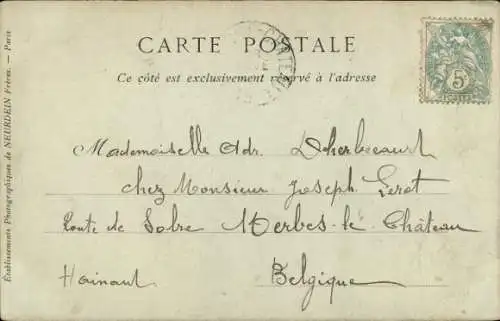 CARTE POSTALE
Ce côté est exclusivement réservé à l'adresse
5
Mademoiselle Adr. Dherbecourt
chez Monsieur Joseph Leret
Route de Solre Merbes-le-Château
Hainaut Belgique
Établissements Photographiques de NEURDEIN Frères. — Paris